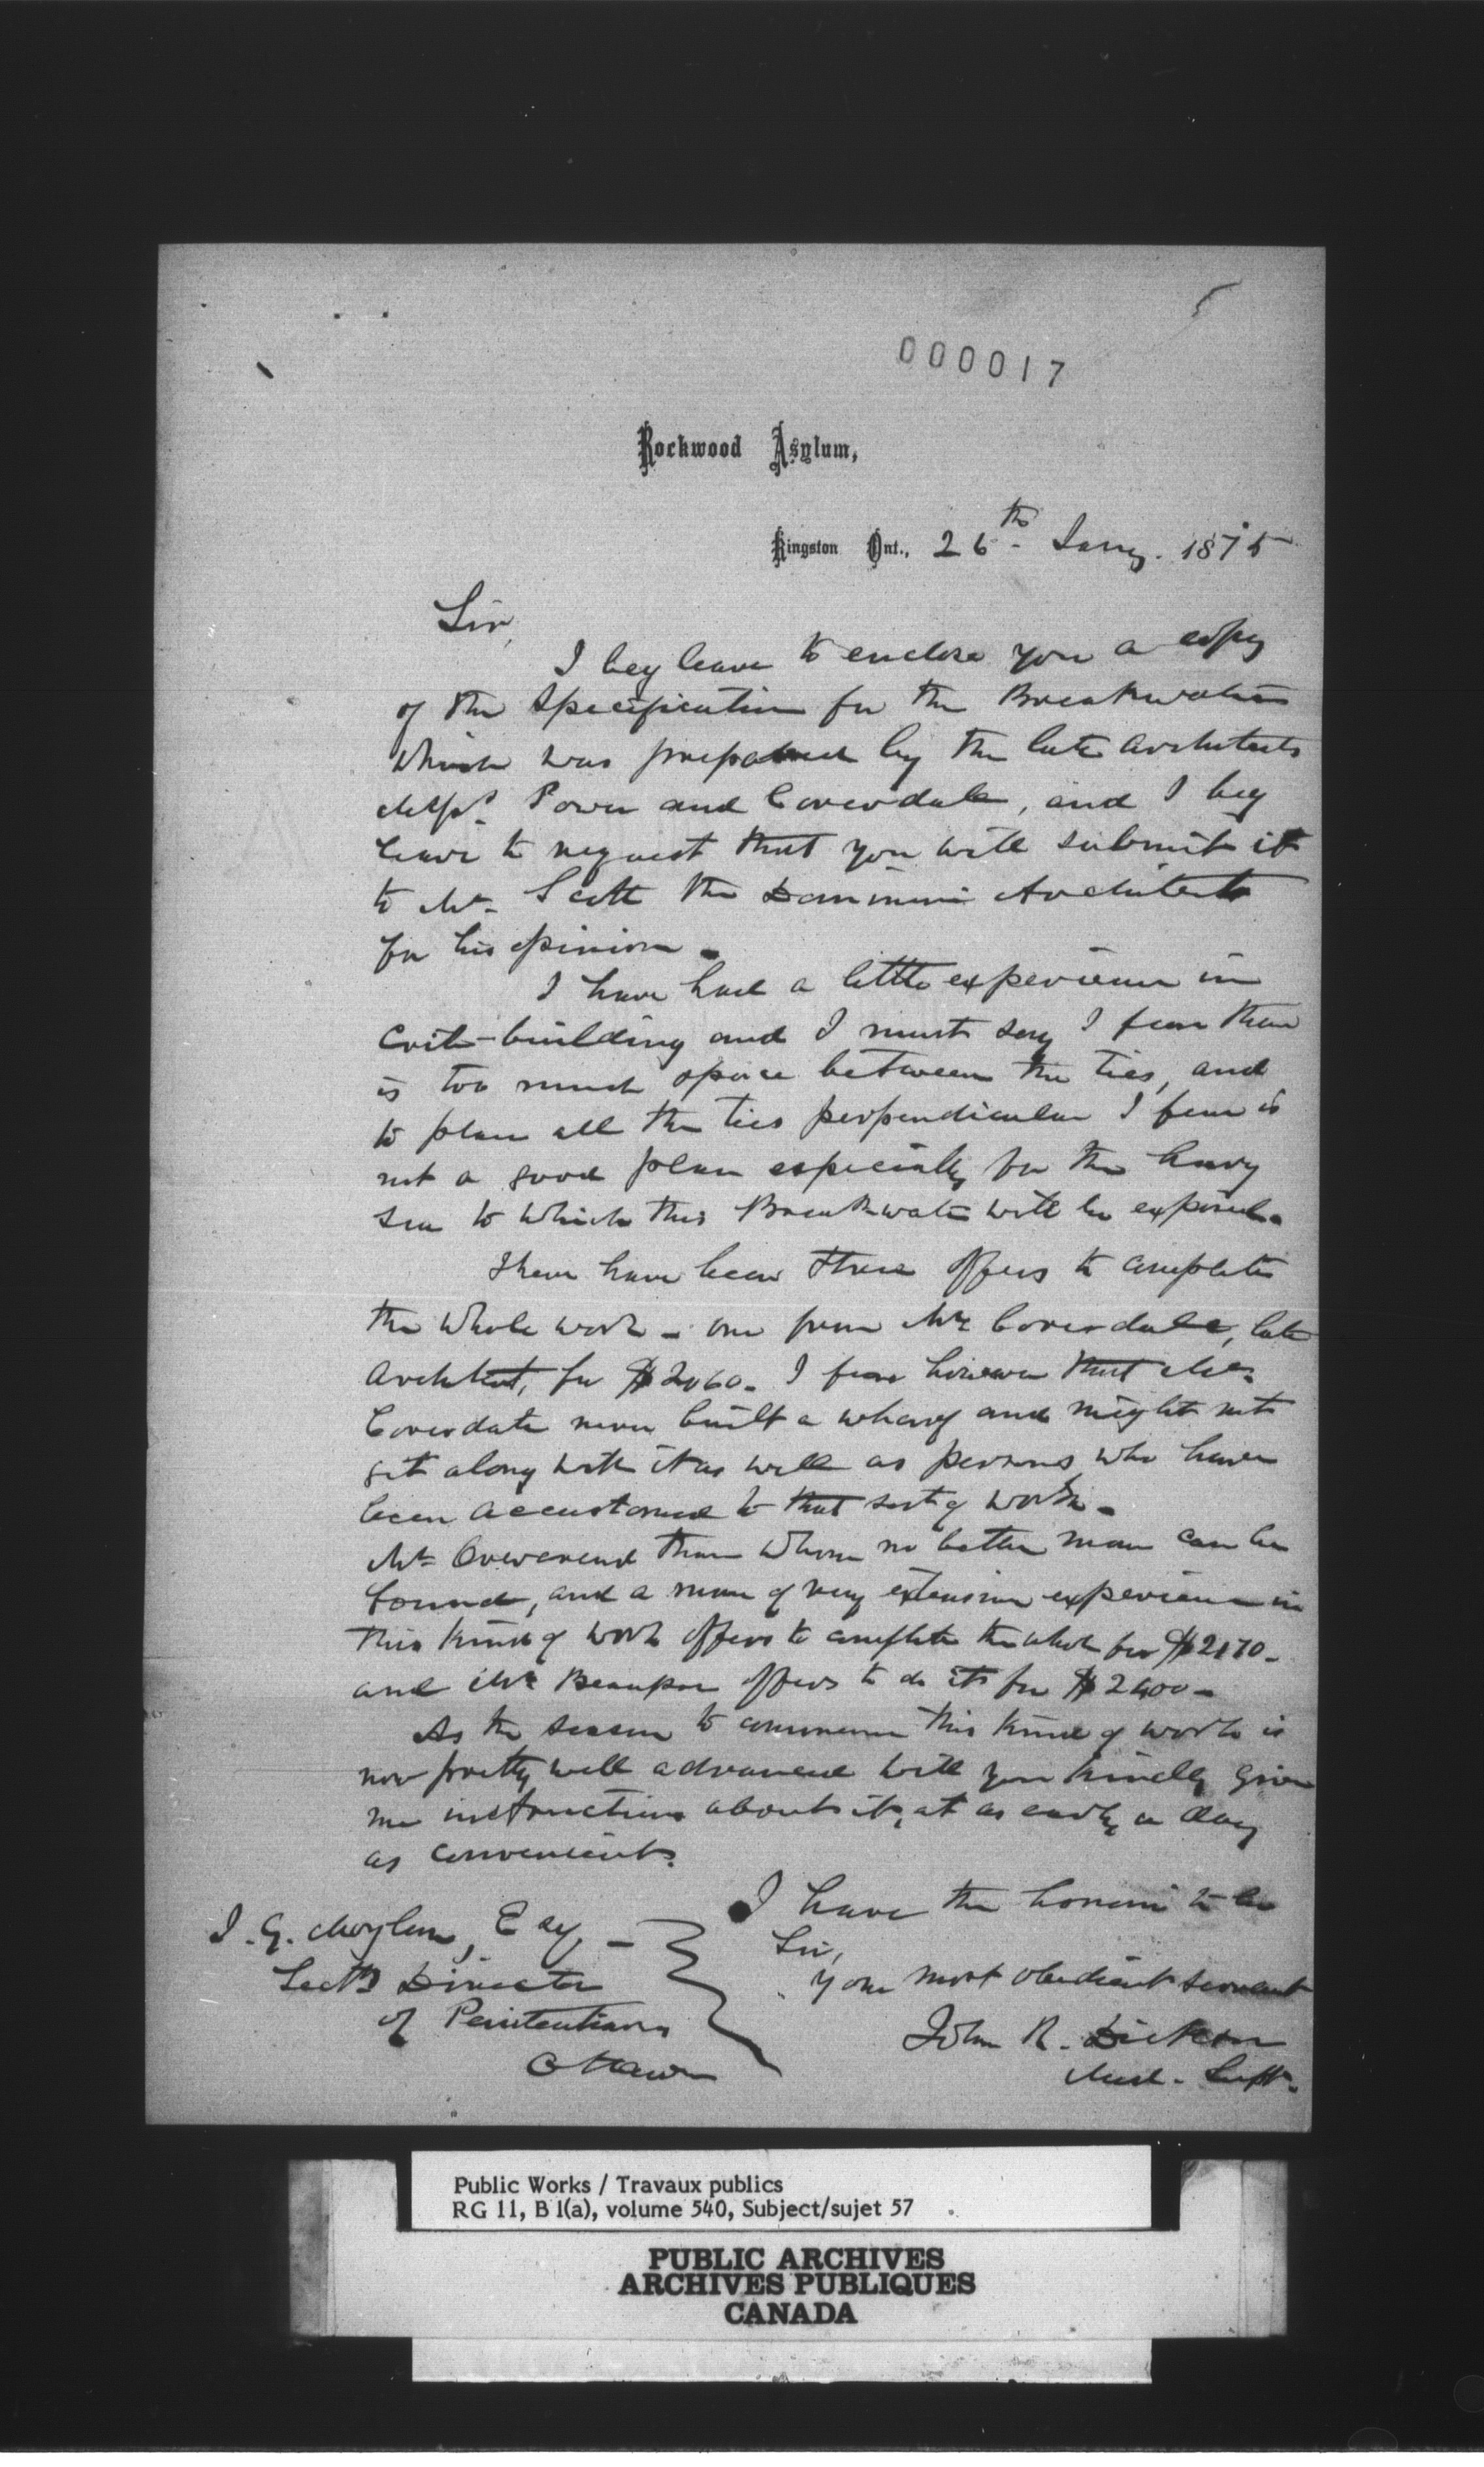 000017
Rockwood Asylum,
Kingston Ont., 26th Jany. 1875
Sir,
I beg leave to enclose you a copy
of the Specification for the Breakwater
which was prepared by the late architects
Messrs. Power and Coverdale, and I beg
leave to request that you will submit it
to Mr. Scott the Dominion Architect
for his opinion.
I have had a little experience in
Crib-building and I must say I fear there
is too much space between the ties, and
to place all the ties perpendicular I fear is
not a good plan especially for the heavy
sea to which this Breakwater will be exposed.
There have been three offers to complete
the whole work - one from Mr Coverdale, late
Architect, for $2060. I fear however that Mr.
Coverdale never built a wharf and might not
get along with it as well as persons who have
been accustomed to that sort of work.
Mr. than whom no better man can be
found, and a man of very extensive experience in
this kind of work offers to complete the whole for $2170.
and Mr Beaupre offers to do it for $2400-
As the season to commence this kind of work is
now pretty well advanced will you kindly give
me instructions about it, at as early a day
as convenient.
I have the honour to be
Sir,
your most obedient servant
John R. Dickson
Med. Supt.
J. G. Moylan, Esq -
Director
of Penitentiaries
Ottawa
Public Works / Travaux publics
RG 11, B 1(a), volume 540, Subject/sujet 57
PUBLIC ARCHIVES
ARCHIVES PUBLIQUES
CANADA